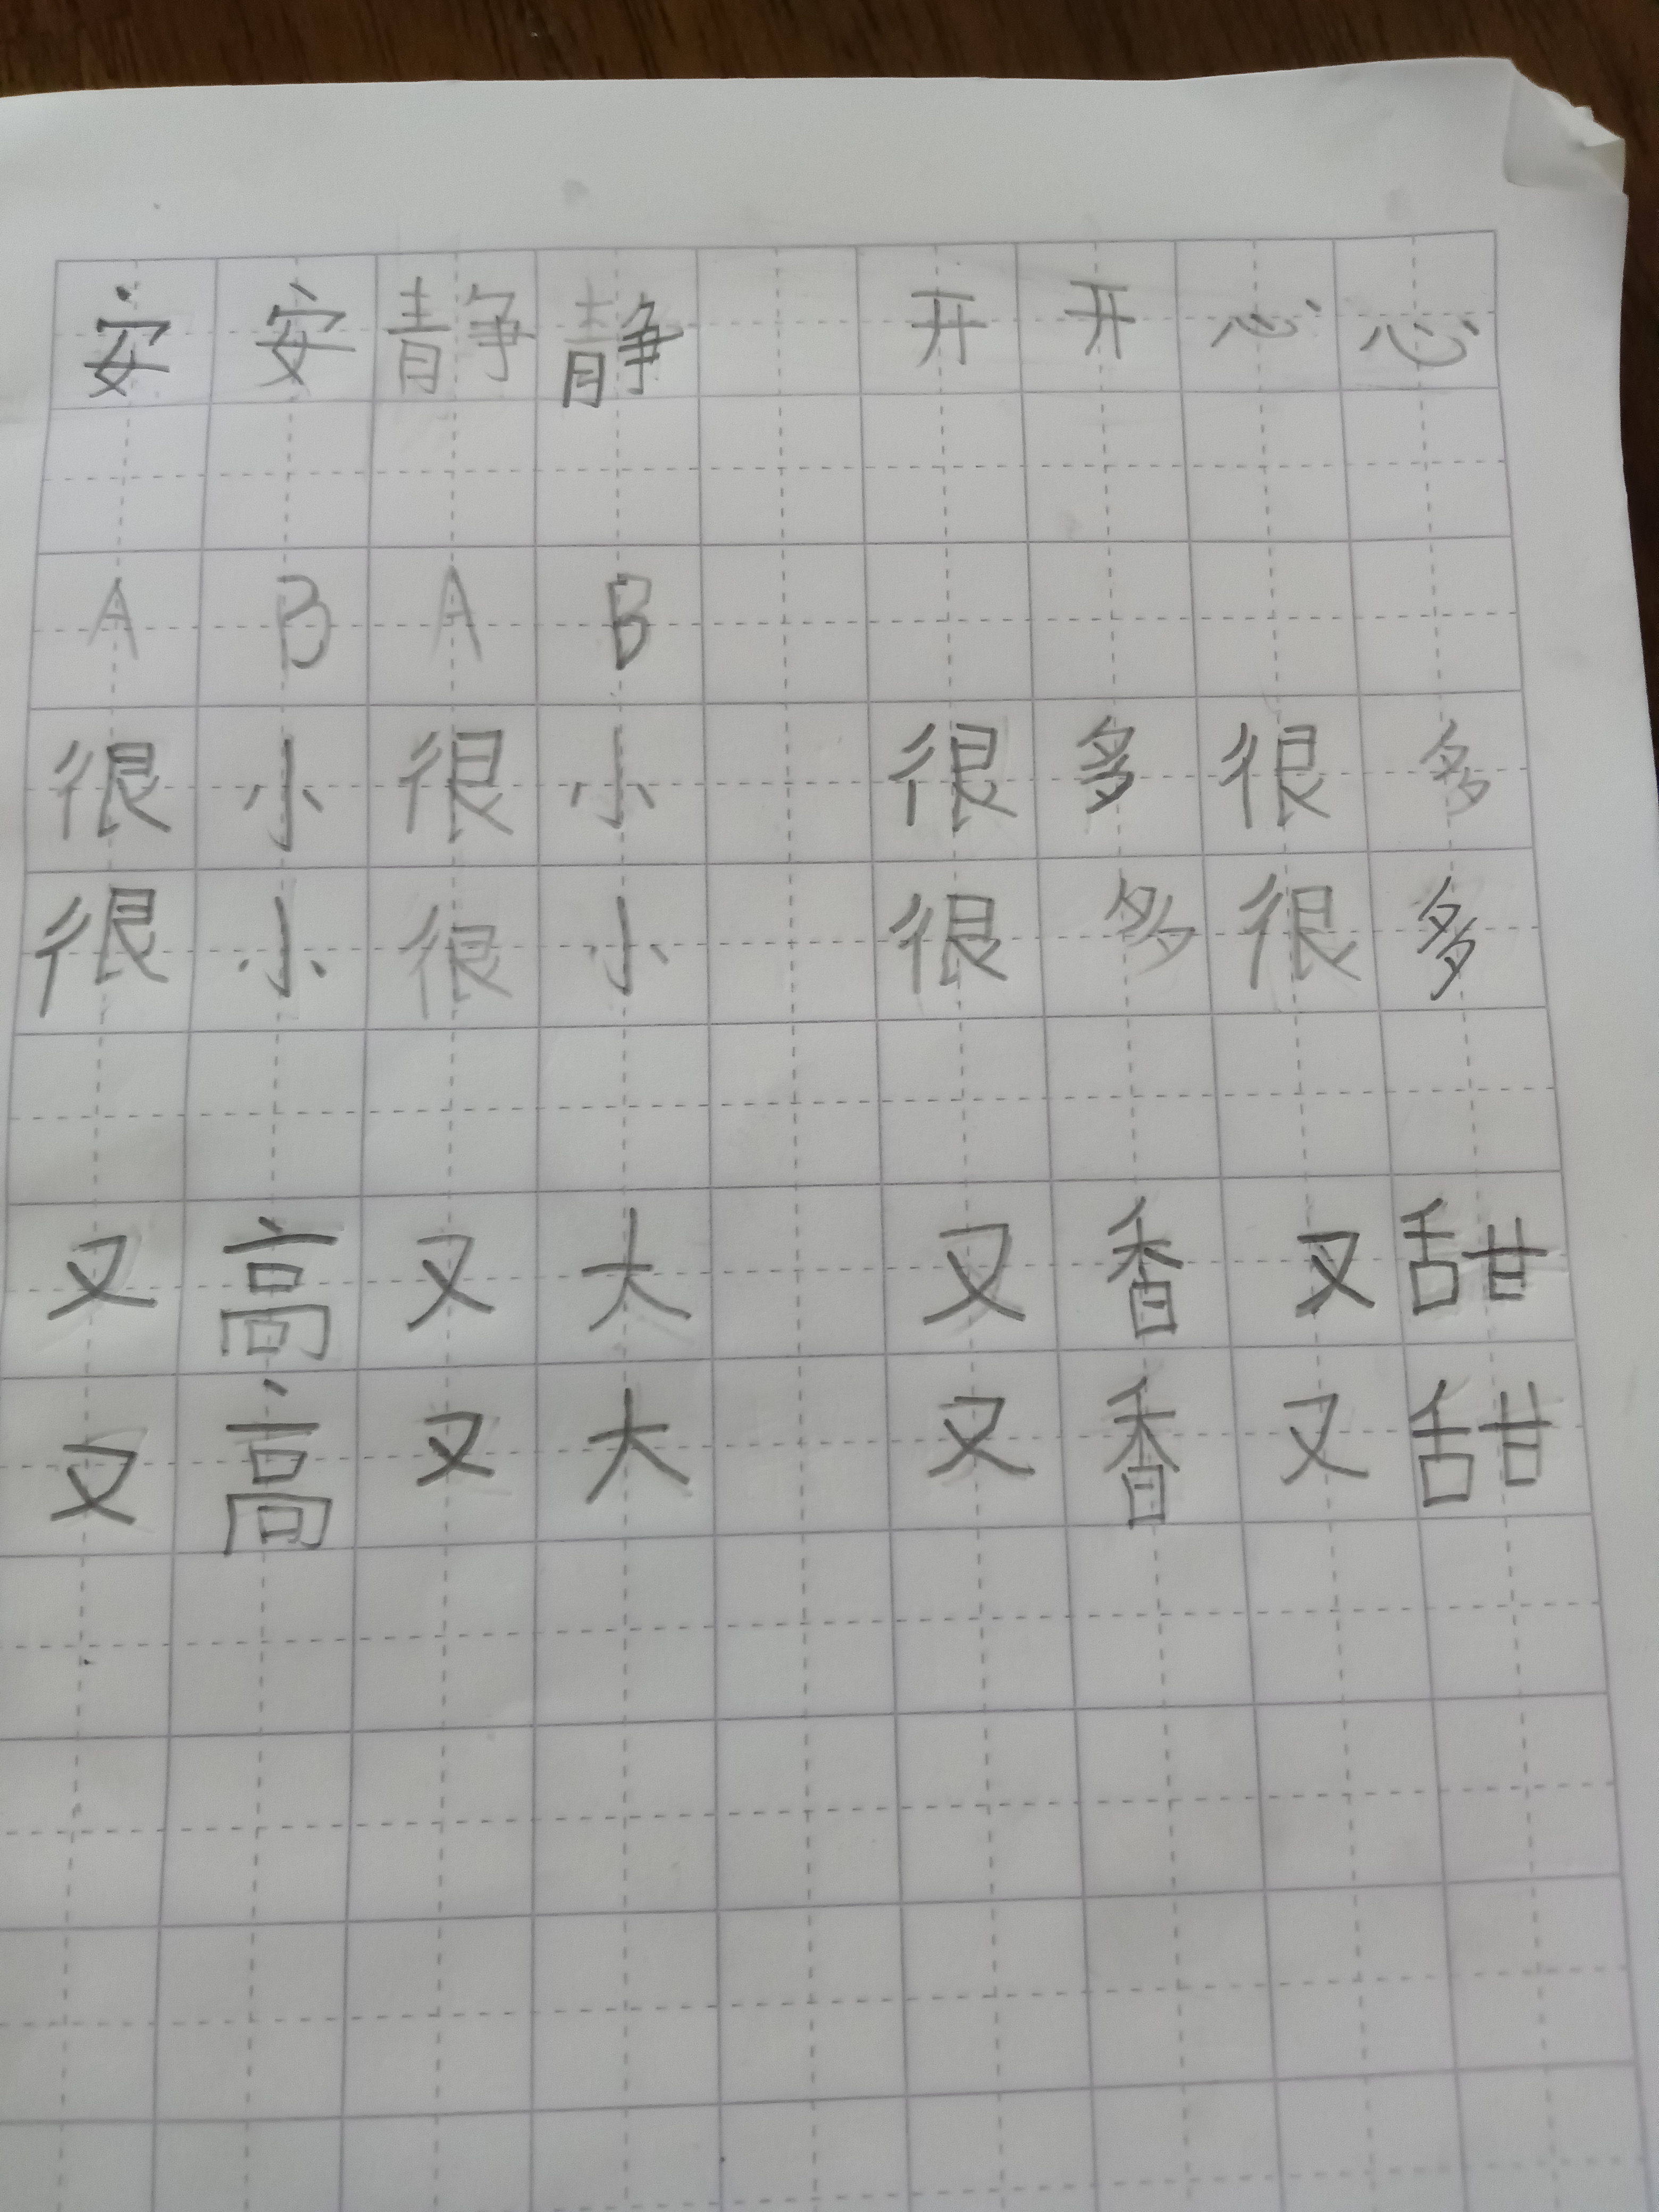 安安静静 开开心心
ABAB
很小很小 很多很多
很小很小 很多很多
又高又大 又香又甜
又高又大 又香又甜